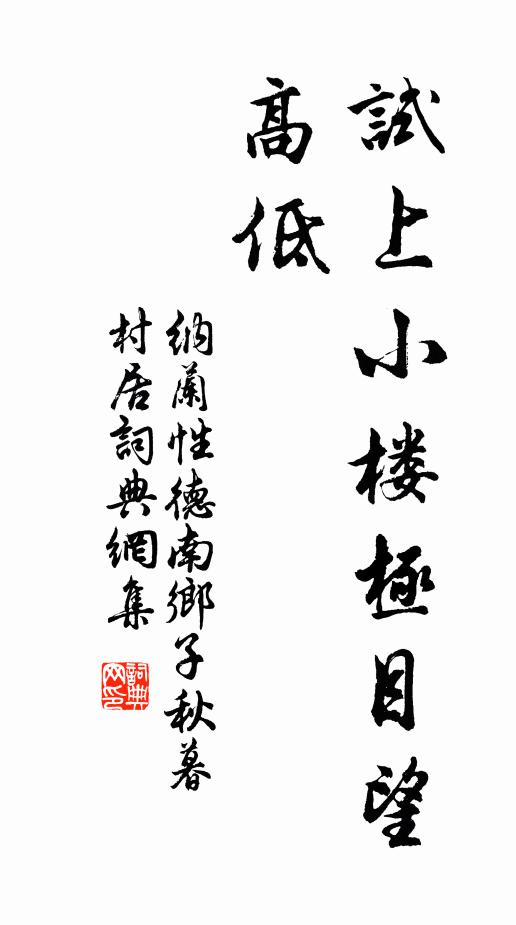 試上小楼極目望
高低
納蘭性德南鄉子秋暮
村居詞典網集
詞典
网印